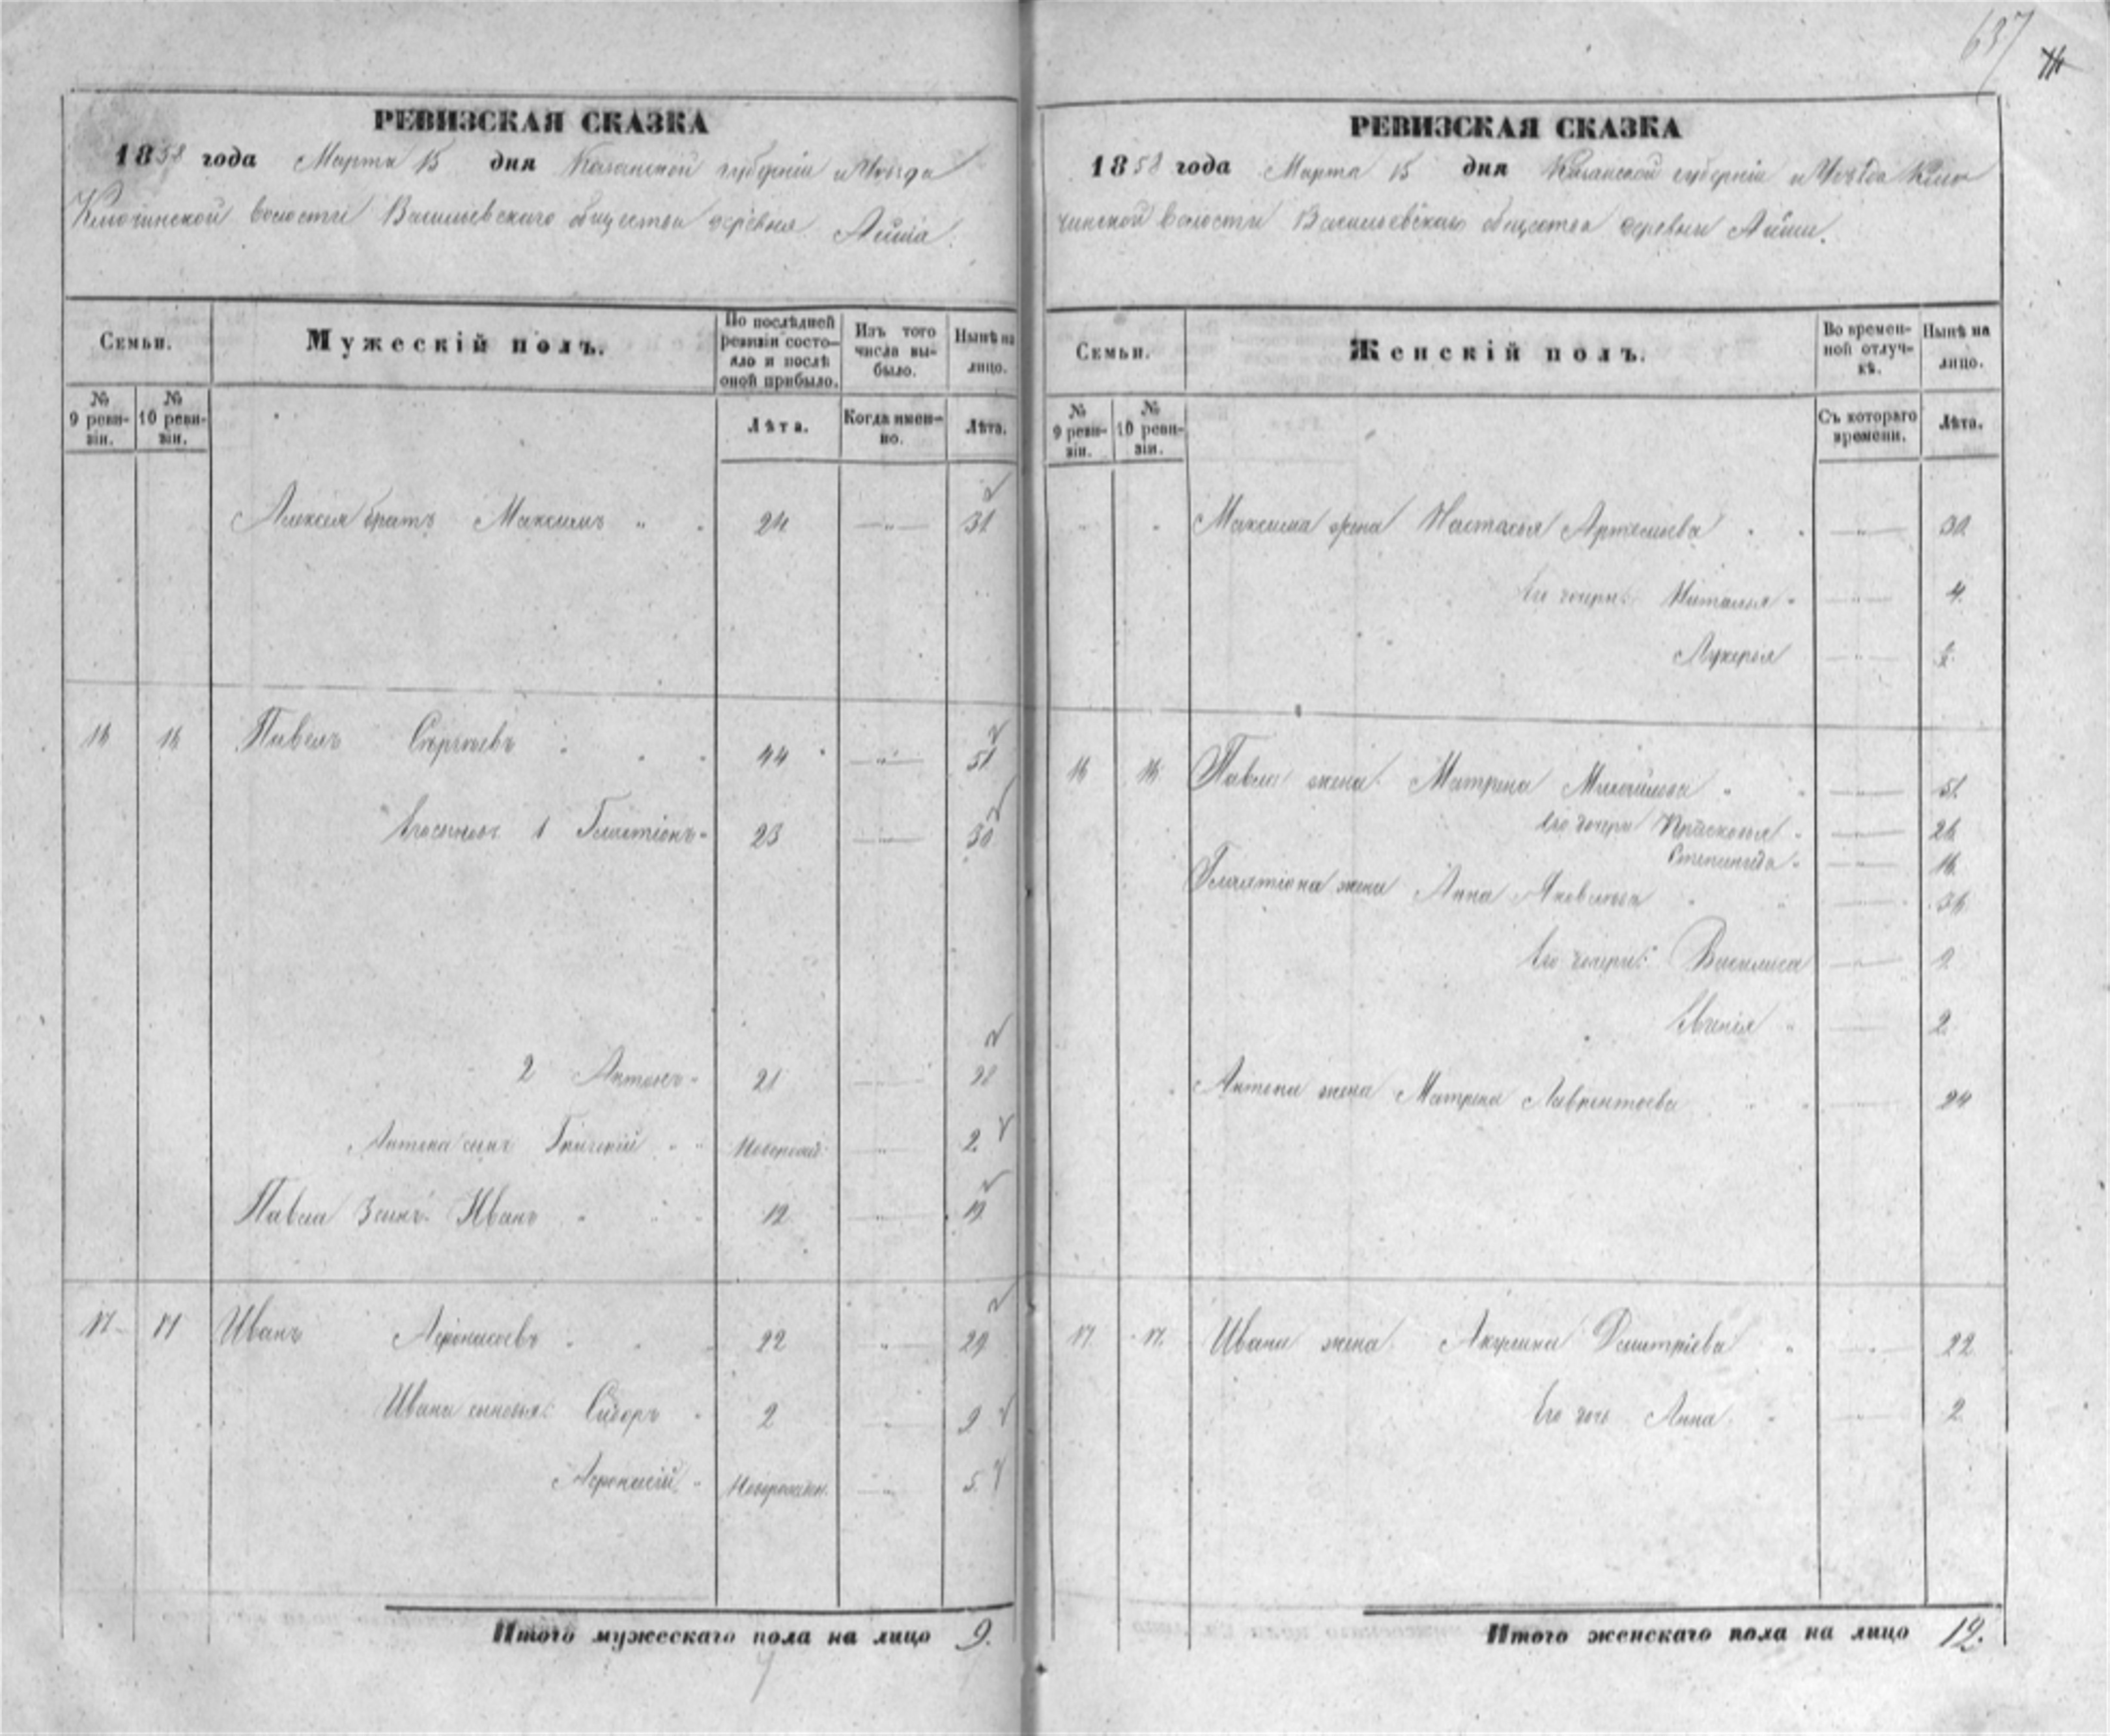 637
РЕВИЗСКАЯ СКАЗКА
1858 года Марта 15 дня Казанской губернiи и Уѣзда
Ключинской волости Васильевскаго общества деревня Айша.
Семьи.
Мужескiй полъ.
По послѣдней ревизiи состояло и послѣ оной прибыло.
Изъ того числа выбыло.
Нынѣ на лицо.
№ 9 ревизiи.
№ 10 ревизiи.
Лѣта.
Когда именно.
Лѣта.
Алексѣя братъ Максимъ " 24 " 31
16 16 Павелъ Сергѣевъ 44 " 51
Его сыновья 1 23 " 30
2 Антонъ 21 28
Антона сынъ Григорiй Новорожд. " 2
Павла 3 сынъ Иванъ 12 " 19
17 17 Иванъ Афонасьевъ 22 " 29
Ивана сыновья: Сидоръ 2 9
Афонасiй Новорожден. 5
Итого мужескаго пола на лицо 9.
РЕВИЗСКАЯ СКАЗКА
1858 года Марта 15 дня Казанской губернiи и Уѣзда Клю-
чинской волости Васильевскаго общества деревни Айши.
Семьи.
Женскiй полъ.
Во временной отлучкѣ.
Нынѣ на лицо.
№ 9 ревизiи.
№ 10 ревизiи.
Съ котораго времени.
Лѣта.
" " Максима жена Настасья Артемьева " 30
Его дочери: Наталья " 4.
Лукерья "
16 16 Павла жена Матрена Михайлова " 51.
Его дочери Прасковья " 26
Степанида " 16.
жена Анна Яковлева
Его дочери: Василиса " 9
Евгенiя 2.
Антона жена Матрена Лаврентьева 24
17 17. Ивана жена Акулина Дмитрiева 22
Его дочь Анна " 2.
Итого женскаго пола на лицо 12.